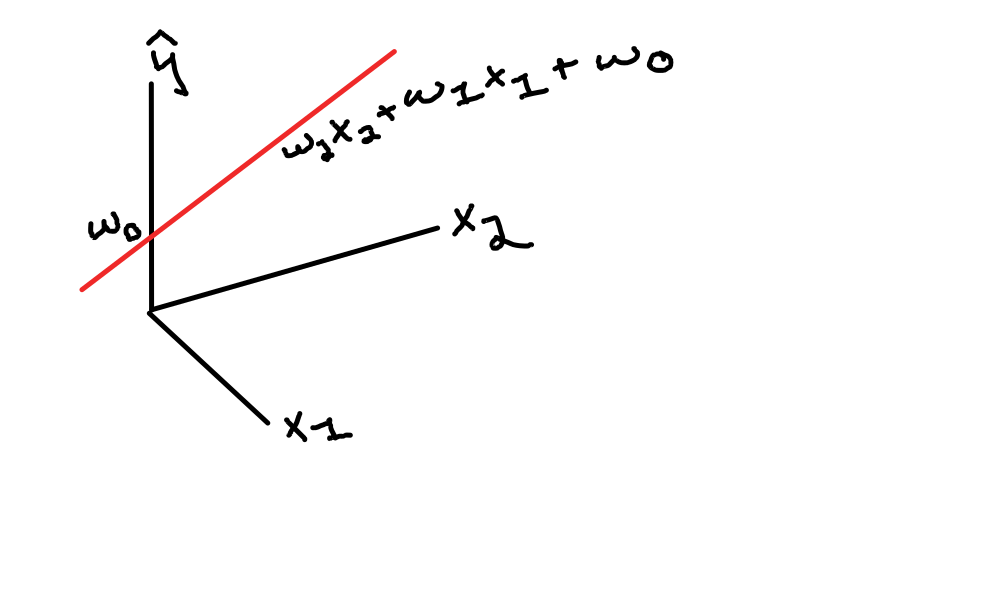 ŷ
w₂x₂+w1x1+w0
w0
x2
x1